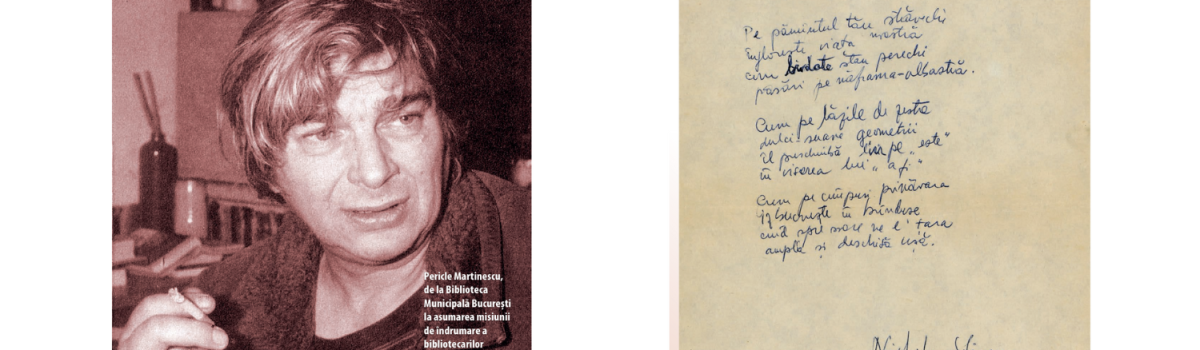 Pericle Martinescu,
de la Biblioteca
Municipală București
la asumarea misiunii
de îndrumare a
bibliotecarilor
Pe pămîntul tău străvechi
Înflorește viața noastră
cum brodate stau perechi
păsări pe năframa-albastră.
Cum pe lăzile de zestre
dulci-suave geometrii
îl preschimbă lin pe „este”
în visarea lui „a fi”
Cum pe cîmpuri primăvara
izbucnește în brîndușe
cînd spre soare ne e țara
amplă și deschisă ușă.